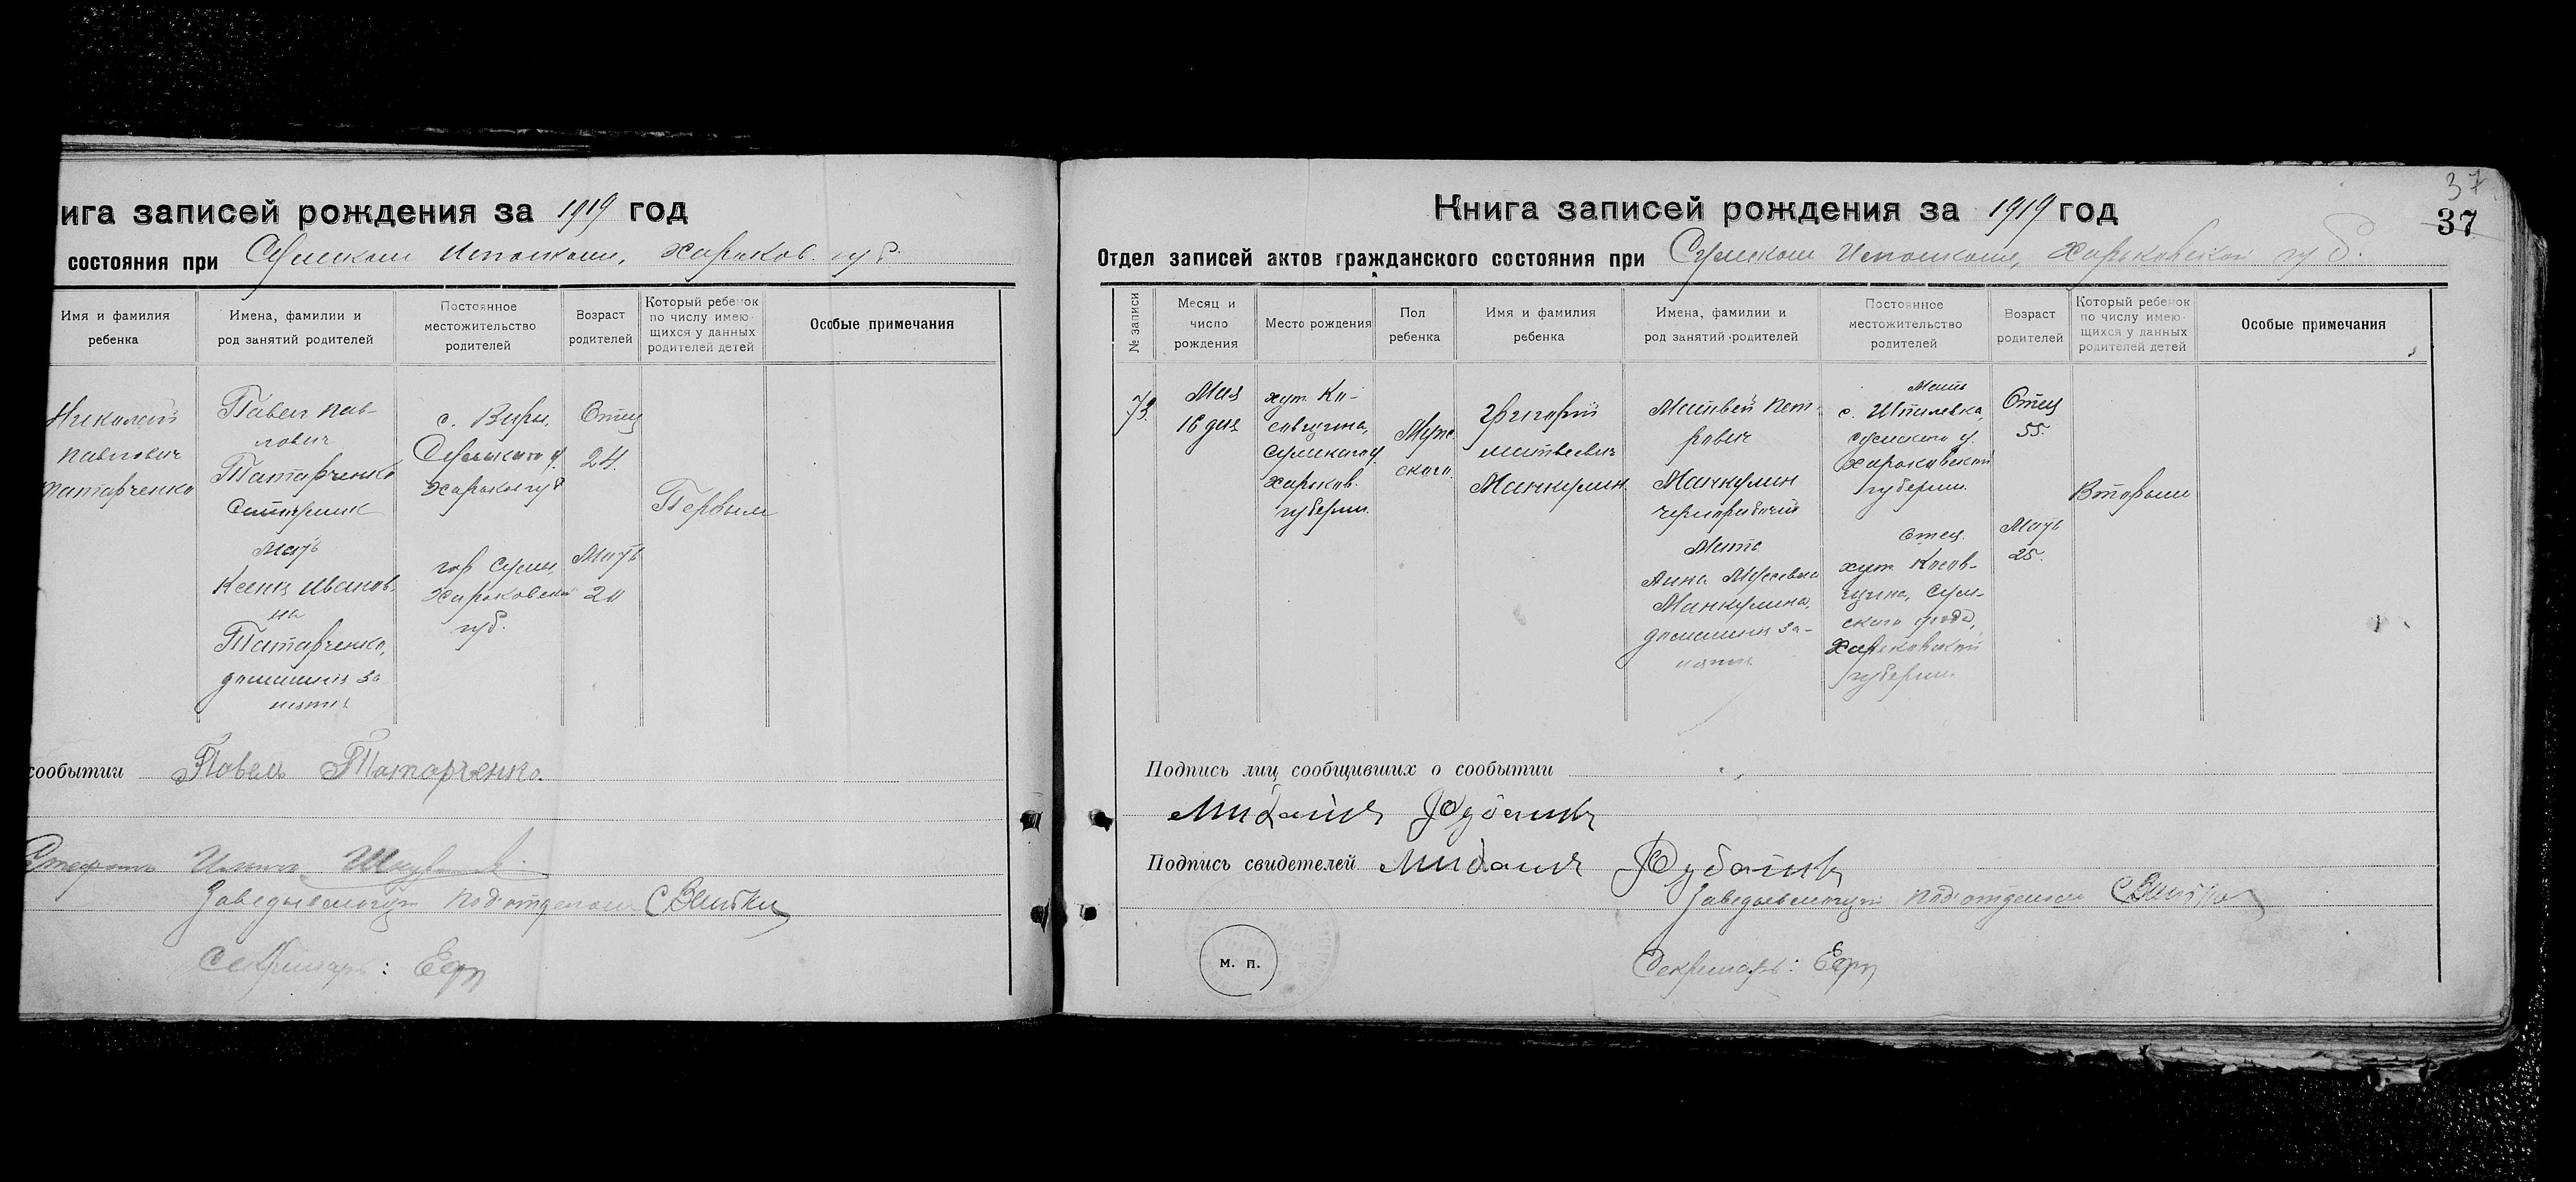 ига записей рождения за 1919 год
состояния при Сумском Исполкоме, Харьков. губ.
Имя и фамилия
ребенка
Имена, фамилии и
род занятий родителей
Постоянное
местожительство
родителей
Возраст
родителей
Который ребенок
по числу имею-
щихся у данных
родителей детей
Особые примечания
Николай
Павлович
Татарченко
Павел Пав-
лович
Татарченко
Мать
Ксения Иванов-
на
Татарченко,
домашния за
нятия
с. Виры,
Сумского у.
Харьков губ
гор Сумы,
Харьковской
губ.
Отец
24.
Мать
20
Первым
сообытии Павелъ Татарченко.
Заведывающий Подотделом
Секретарь:
37
37
Книга записей рождения за 1919 год
Отдел записей актов гражданского состояния при Сумском Исполкоме, Харьковской губ.
№ записи
Месяц и
число
рождения
Место рождения
Пол
ребенка
Имя и фамилия
ребенка
Имена, фамилии и
род занятий родителей
Постоянное
местожительство
родителей
Возраст
родителей
Который ребенок
по числу имею-
щихся у данных
родителей детей
Особые примечания
73.
Мая
16 дня
хут. Ко-
совщина,
Сумского у.
Харьков.
губернии.
Муж
ского
Григорий
Матвеевич
Манкулин.
Матвей Пет-
рович
Манкулин
чернорабочий
Мать
Анна
Манкулина,
домашния за-
нятия.
Мать
с.
Сумского у.
Харьковской
губернии.
Отец.
хут. Косов-
щина, Сум-
ского уезда,
Харьковской
губернии.
Отец
55.
Мать
25.
Вторым
Подпись лиц сообщивших о сообытии
Подпись свидетелей
Заведывающий Подотделом
м. п.
Секретарь: